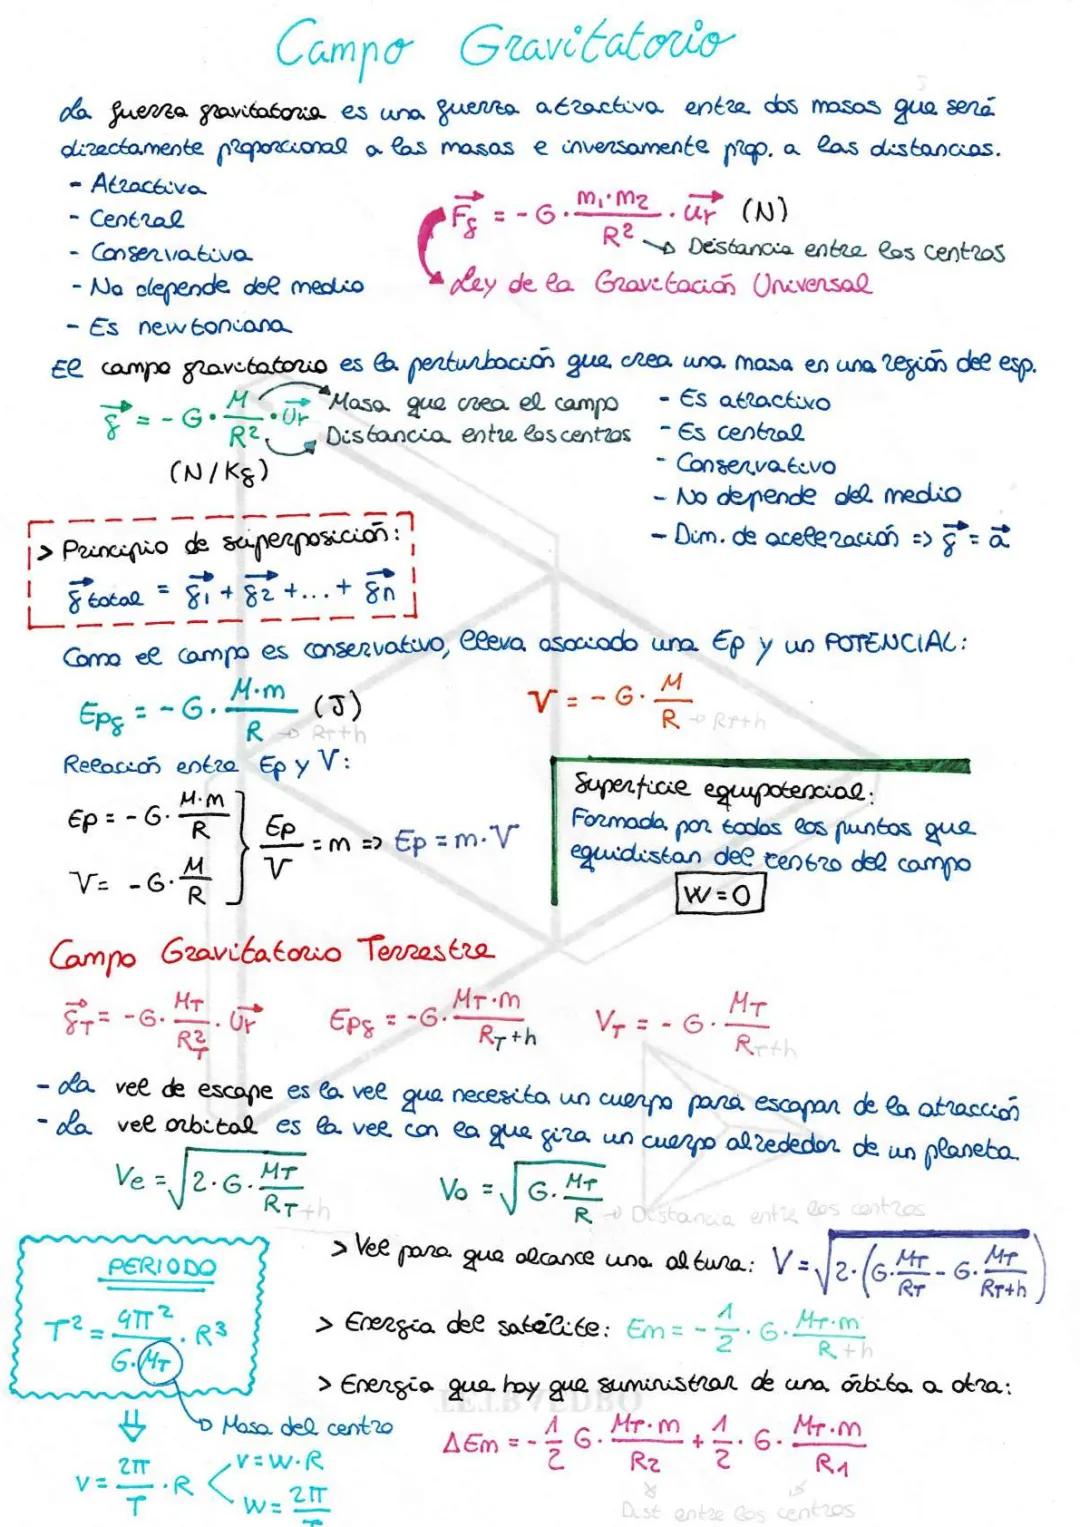 Campo Gravitatorio
La fuerza gravitatoria es una fuerza atractiva entre dos masas que será
directamente proporcional a las masas e inversamente prop. a las distancias.
- Atractiva
- Central
- Conservativa
- No depende del medio
- Es newtoniana
Fg = - G · m1·m2 / R² · ur (N)
Distancia entre los centros
Ley de la Gravitación Universal
El campo gravitatorio es la perturbación que crea una masa en una región del esp.
g = - G · M / R² · ur
Masa que crea el campo
Distancia entre los centros
(N/Kg)
- Es atractivo
- Es central
- Conservativo
- No depende del medio
- Dim. de aceleración => g = a
> Principio de superposición:
g total = g1 + g2 + ... + gn
Como el campo es conservativo, lleva asociado una Ep y un POTENCIAL:
Epg = - G · M·m / R (J)
RT+h
V = - G · M / R
RT+h
Relación entre Ep y V:
Ep = - G · M·m / R
V = - G · M / R
Ep / V = m => Ep = m·V
Superficie equipotencial:
Formada por todos los puntos que
equidistan del centro del campo
W=0
Campo Gravitatorio Terrestre
gT = - G · MT / RT² · ur
Epg = - G · MT·m / RT+h
VT = - G · MT / RT+h
- La vel de escape es la vel que necesita un cuerpo para escapar de la atracción
- La vel orbital es la vel con la que gira un cuerpo alrededor de un planeta.
Ve = √2·G· MT / RT+h
Vo = √G· MT / R
Distancia entre los centros
PERIODO
T² = 4π² / G·MT · R³
Masa del centro
v = 2π / T · R
v=w·R
w= 2π / T
> Vel para que alcance una altura: V = √2·(G· MT / RT - G· MT / RT+h)
> Energía del satélite: Em = - 1/2 · G · MT·m / R+h
> Energía que hay que suministrar de una órbita a otra:
ΔEm = - 1/2 G · MT·m / R2 + 1/2 · G · MT·m / R1
Dist entre los centros